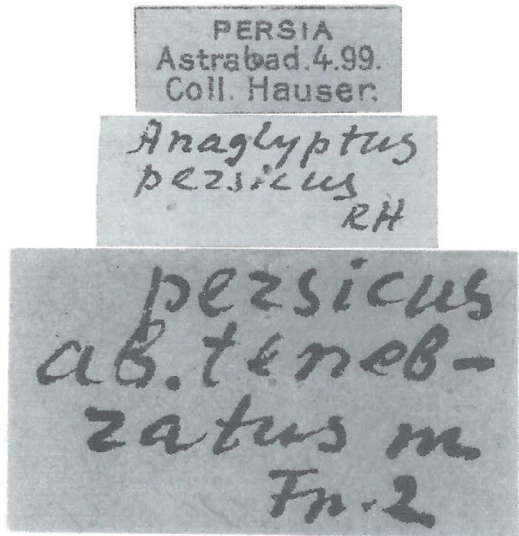 PERSIA
Astrabad.4.99.
Coll. Hauser.
Anaglyptus
persicus
RH
persicus
ab. teneb-
ratus m.